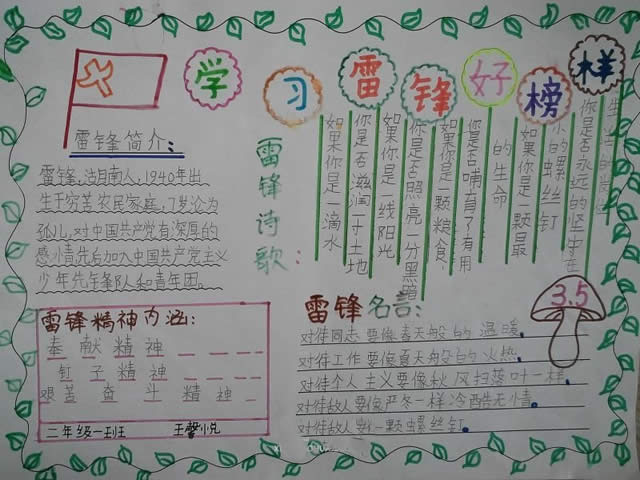 学习雷锋好榜样
雷锋简介:
雷锋,湖南人,1940年出
生于穷苦农民家庭,7岁沦为
孤儿,对中国共产党有深厚的
感情先后加入中国共产主义
少年先锋队和青年团。
雷锋诗歌:
如果你是一滴水
你是否滋润一寸土地
如果你是一线阳光
你是否照亮一分黑暗
如果你是一颗粮食
你是否哺育了有用
的生命
如果你是一颗最
小的螺丝钉
你是否永远的坚守在
生活的岗位
雷锋精神内涵:
奉献精神
钉子精神
艰苦奋斗精神
二年级一班 王馨悦
雷锋名言:
3.5
对待同志要像春天般的温暖。
对待工作要像夏天般的火热。
对待个人主义要像秋风扫落叶一样。
对待敌人要像严冬一样冷酷无情。
对待敌人 一颗螺丝钉。